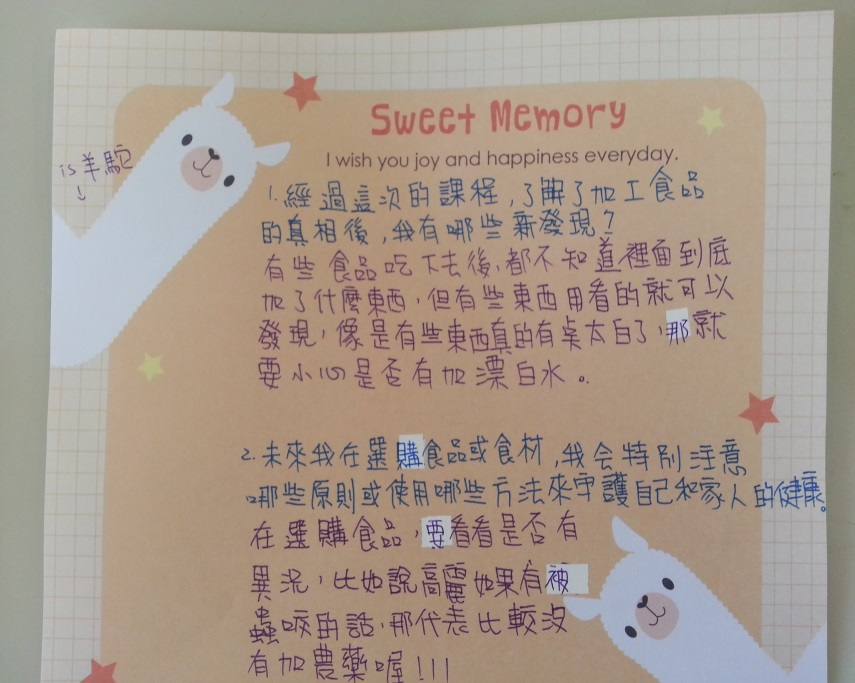 Sweet Memory
I wish you joy and happiness everyday.
is羊駝
↓
1.經過這次的課程,了解了加工食品
的真相後,我有哪些新發現?
有些食品吃下去後,都不知道裡面到底
加了什麼東西,但有些東西用看的就可以
發現,像是有些東西真的有桌太白了,那就
要小心是否有加漂白水。
2.未來我在選購食品或食材,我会特別注意
哪些原則或使用哪些方法來守護自己和家人的健康。
在選購食品,要看看是否有
異況,比如說高麗如果有被
蟲咬的話,那代表比較沒
有加農藥喔!!!